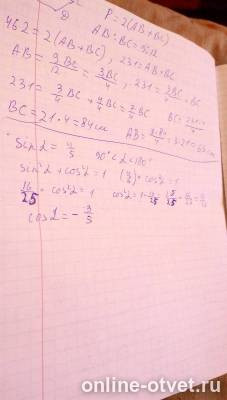 P = 2(AB+BC)
462 = 2(AB+BC), 231 = AB+BC
AB = 9BC/12 = 3BC/4, 231 = 3BC/4 + BC
231 = 3/4 BC + 4/4 BC = 7/4 BC
BC = 21·4 = 84 см
sin α = 4/5 90°<α<180°
sin²α + cos²α = 1 (4/5)² + cos²α = 1
16/25 + cos²α = 1 cos²α = 1 - 16/25
cos α = - 3/5
online-otvet.ru